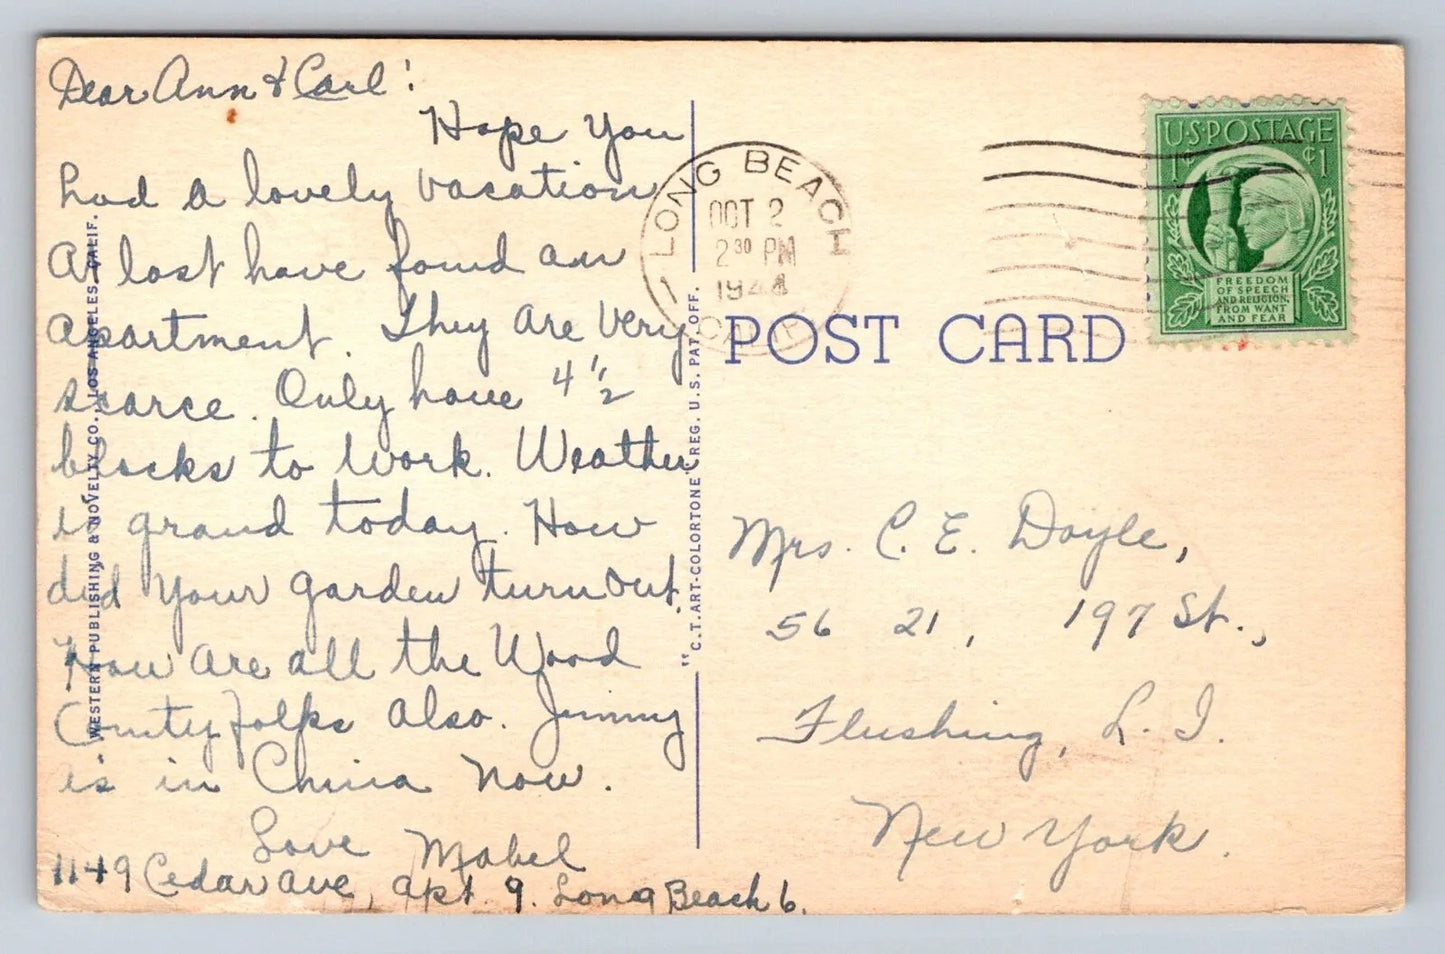 Dear Ann & Carl!
Hope You
had a lovely vacation
At last have found an
apartment. They are very
scarce. Only have 4 1/2
blocks to work. Weather
is grand today. How
did your garden turn out.
How are all the Wood
County folks also. Jimmy
is in China now.
Love Mabel
1149 Cedar ave, apt. 9. Long Beach 6.
WESTERN PUBLISHING & NOVELTY CO., LOS ANGELES, CALIF.
"C.T. ART-COLORTONE" REG. U.S. PAT. OFF.
LONG BEACH
OCT 2
2 30 PM
1944
CALIF.
POST CARD
U·S·POSTAGE
1¢ ¢1
FREEDOM
OF SPEECH
AND RELIGION,
FROM WANT
AND FEAR
Mrs. C. E. Doyle,
56 21, 197 St.,
Flushing, L. I.
New York.